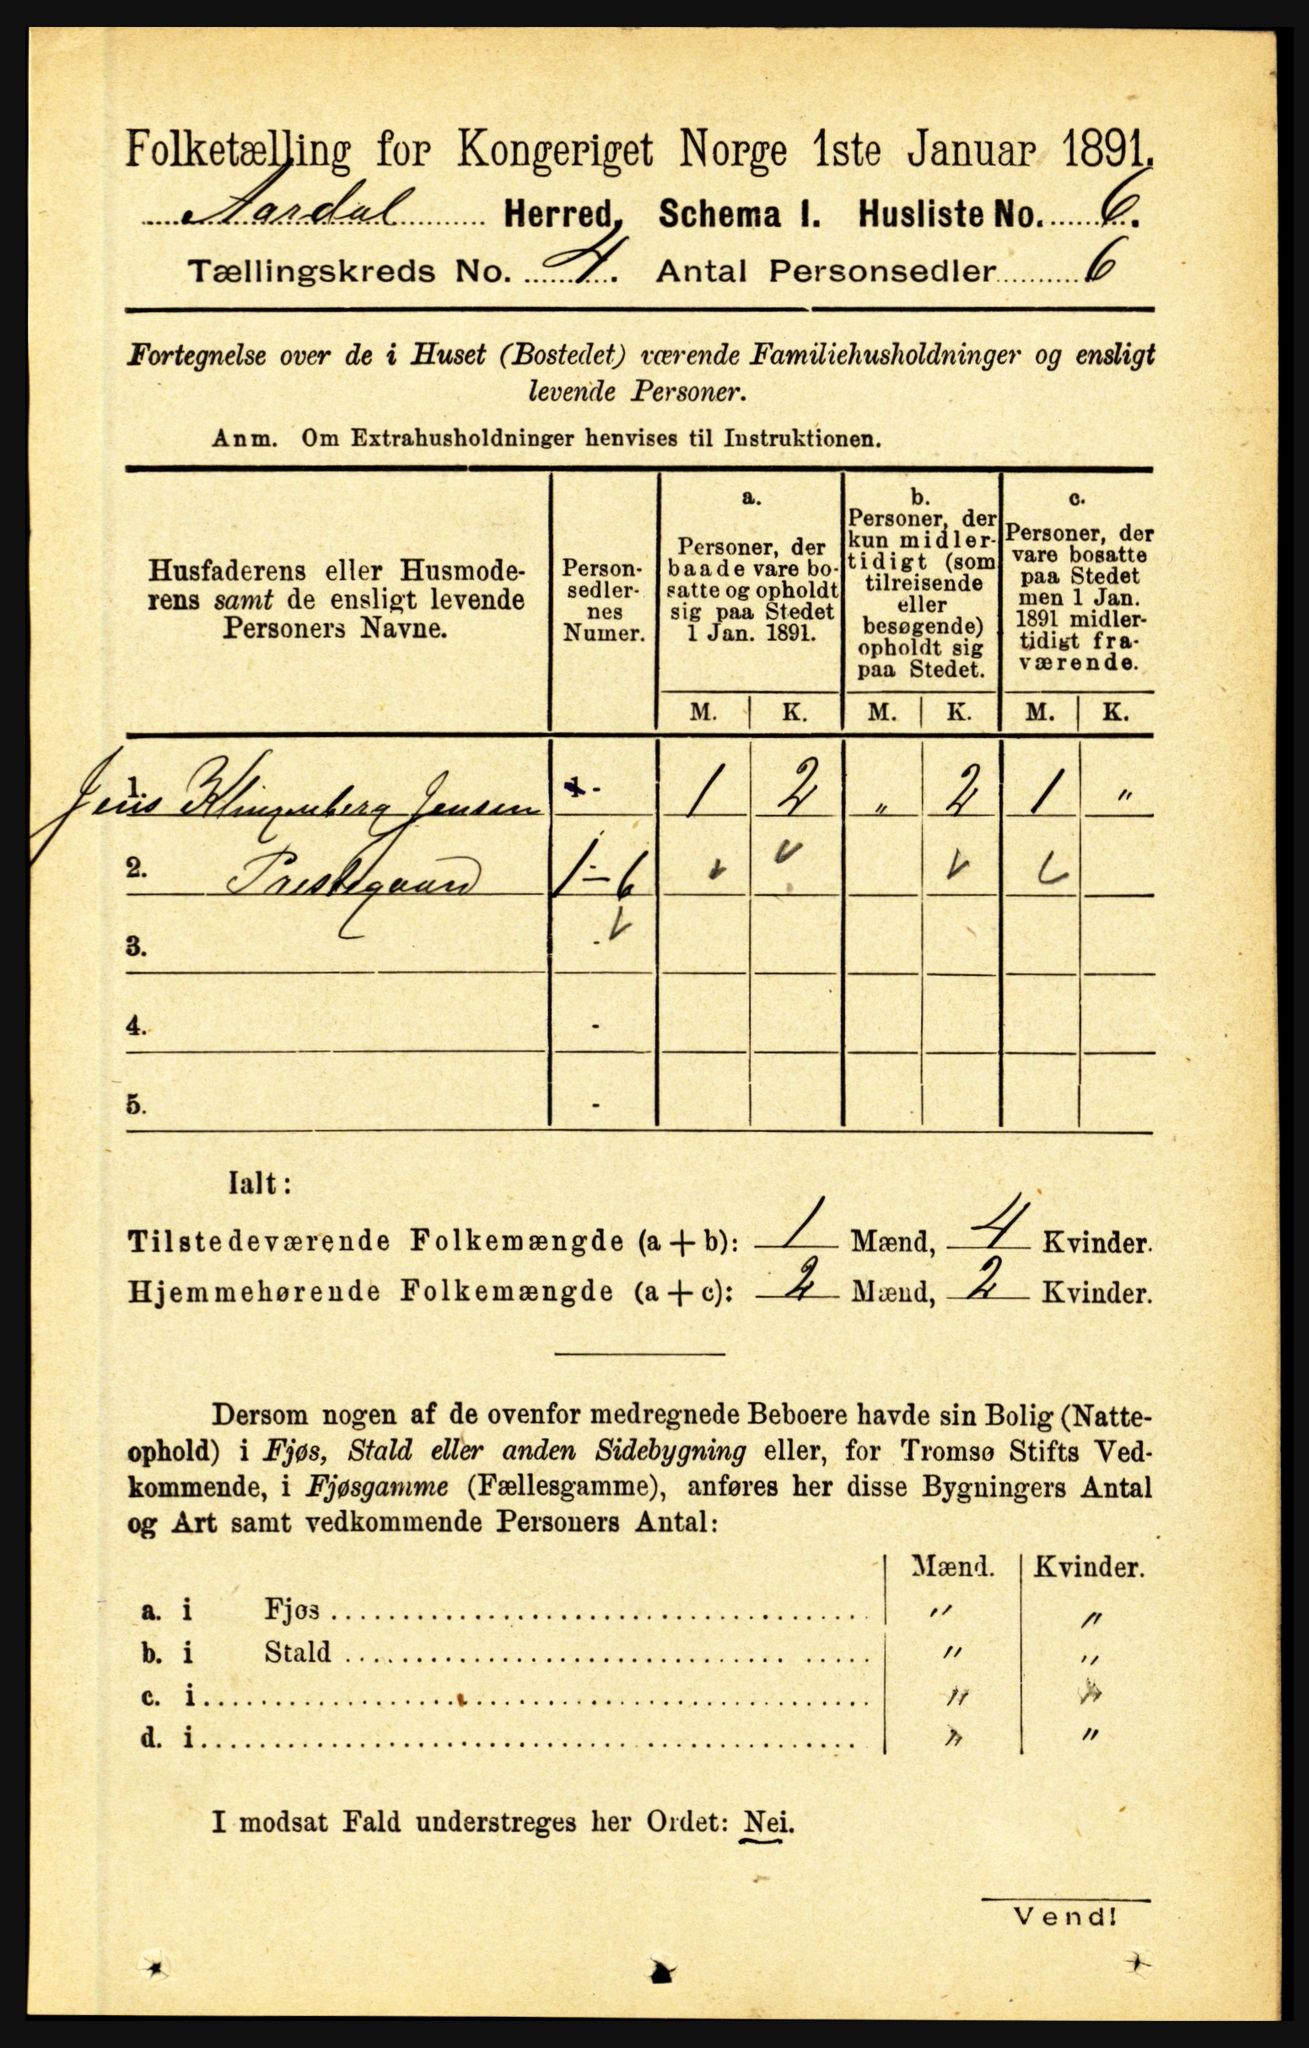 Folketælling for Kongeriget Norge 1ste Januar 1891.
Aardal Herred, Schema I. Husliste No. 6.
Tællingskreds No. 4. Antal Personsedler 6
Fortegnelse over de i Huset (Bostedet) værende Familiehusholdninger og ensligt
levende Personer.
Anm. Om Extrahusholdninger henvises til Instruktionen.
Husfaderens eller Husmode-
rens samt de ensligt levende
Personers Navne.
Person-
sedler-
nes
Numer.
a.
Personer, der
baade vare bo-
satte og opholdt
sig paa Stedet
1 Jan. 1891.
b.
Personer, der
kun midler-
tidigt (som
tilreisende
eller
besøgende)
opholdt sig
paa Stedet.
c.
Personer, der
vare bosatte
paa Stedet
men 1 Jan.
1891 midler-
tidigt fra-
værende.
M. K. M. K. M. K.
1. Jens Klingenberg Jensen - 1 2 " 2 1 "
2. Prestegaard 1-6
3. -
4. -
5. -
Ialt:
Tilstedeværende Folkemængde (a + b): 1 Mænd, 4 Kvinder.
Hjemmehørende Folkemængde (a + c): 2 Mænd, 2 Kvinder.
Dersom nogen af de ovenfor medregnede Beboere havde sin Bolig (Natte-
ophold) i Fjøs, Stald eller anden Sidebygning eller, for Tromsø Stifts Ved-
kommende, i Fjøsgamme (Fællesgamme), anføres her disse Bygningers Antal
og Art samt vedkommende Personers Antal:
Mænd. Kvinder.
a. i Fjøs " "
b. i Stald " "
c. i " "
d. i " "
I modsat Fald understreges her Ordet: Nei.
Vend!